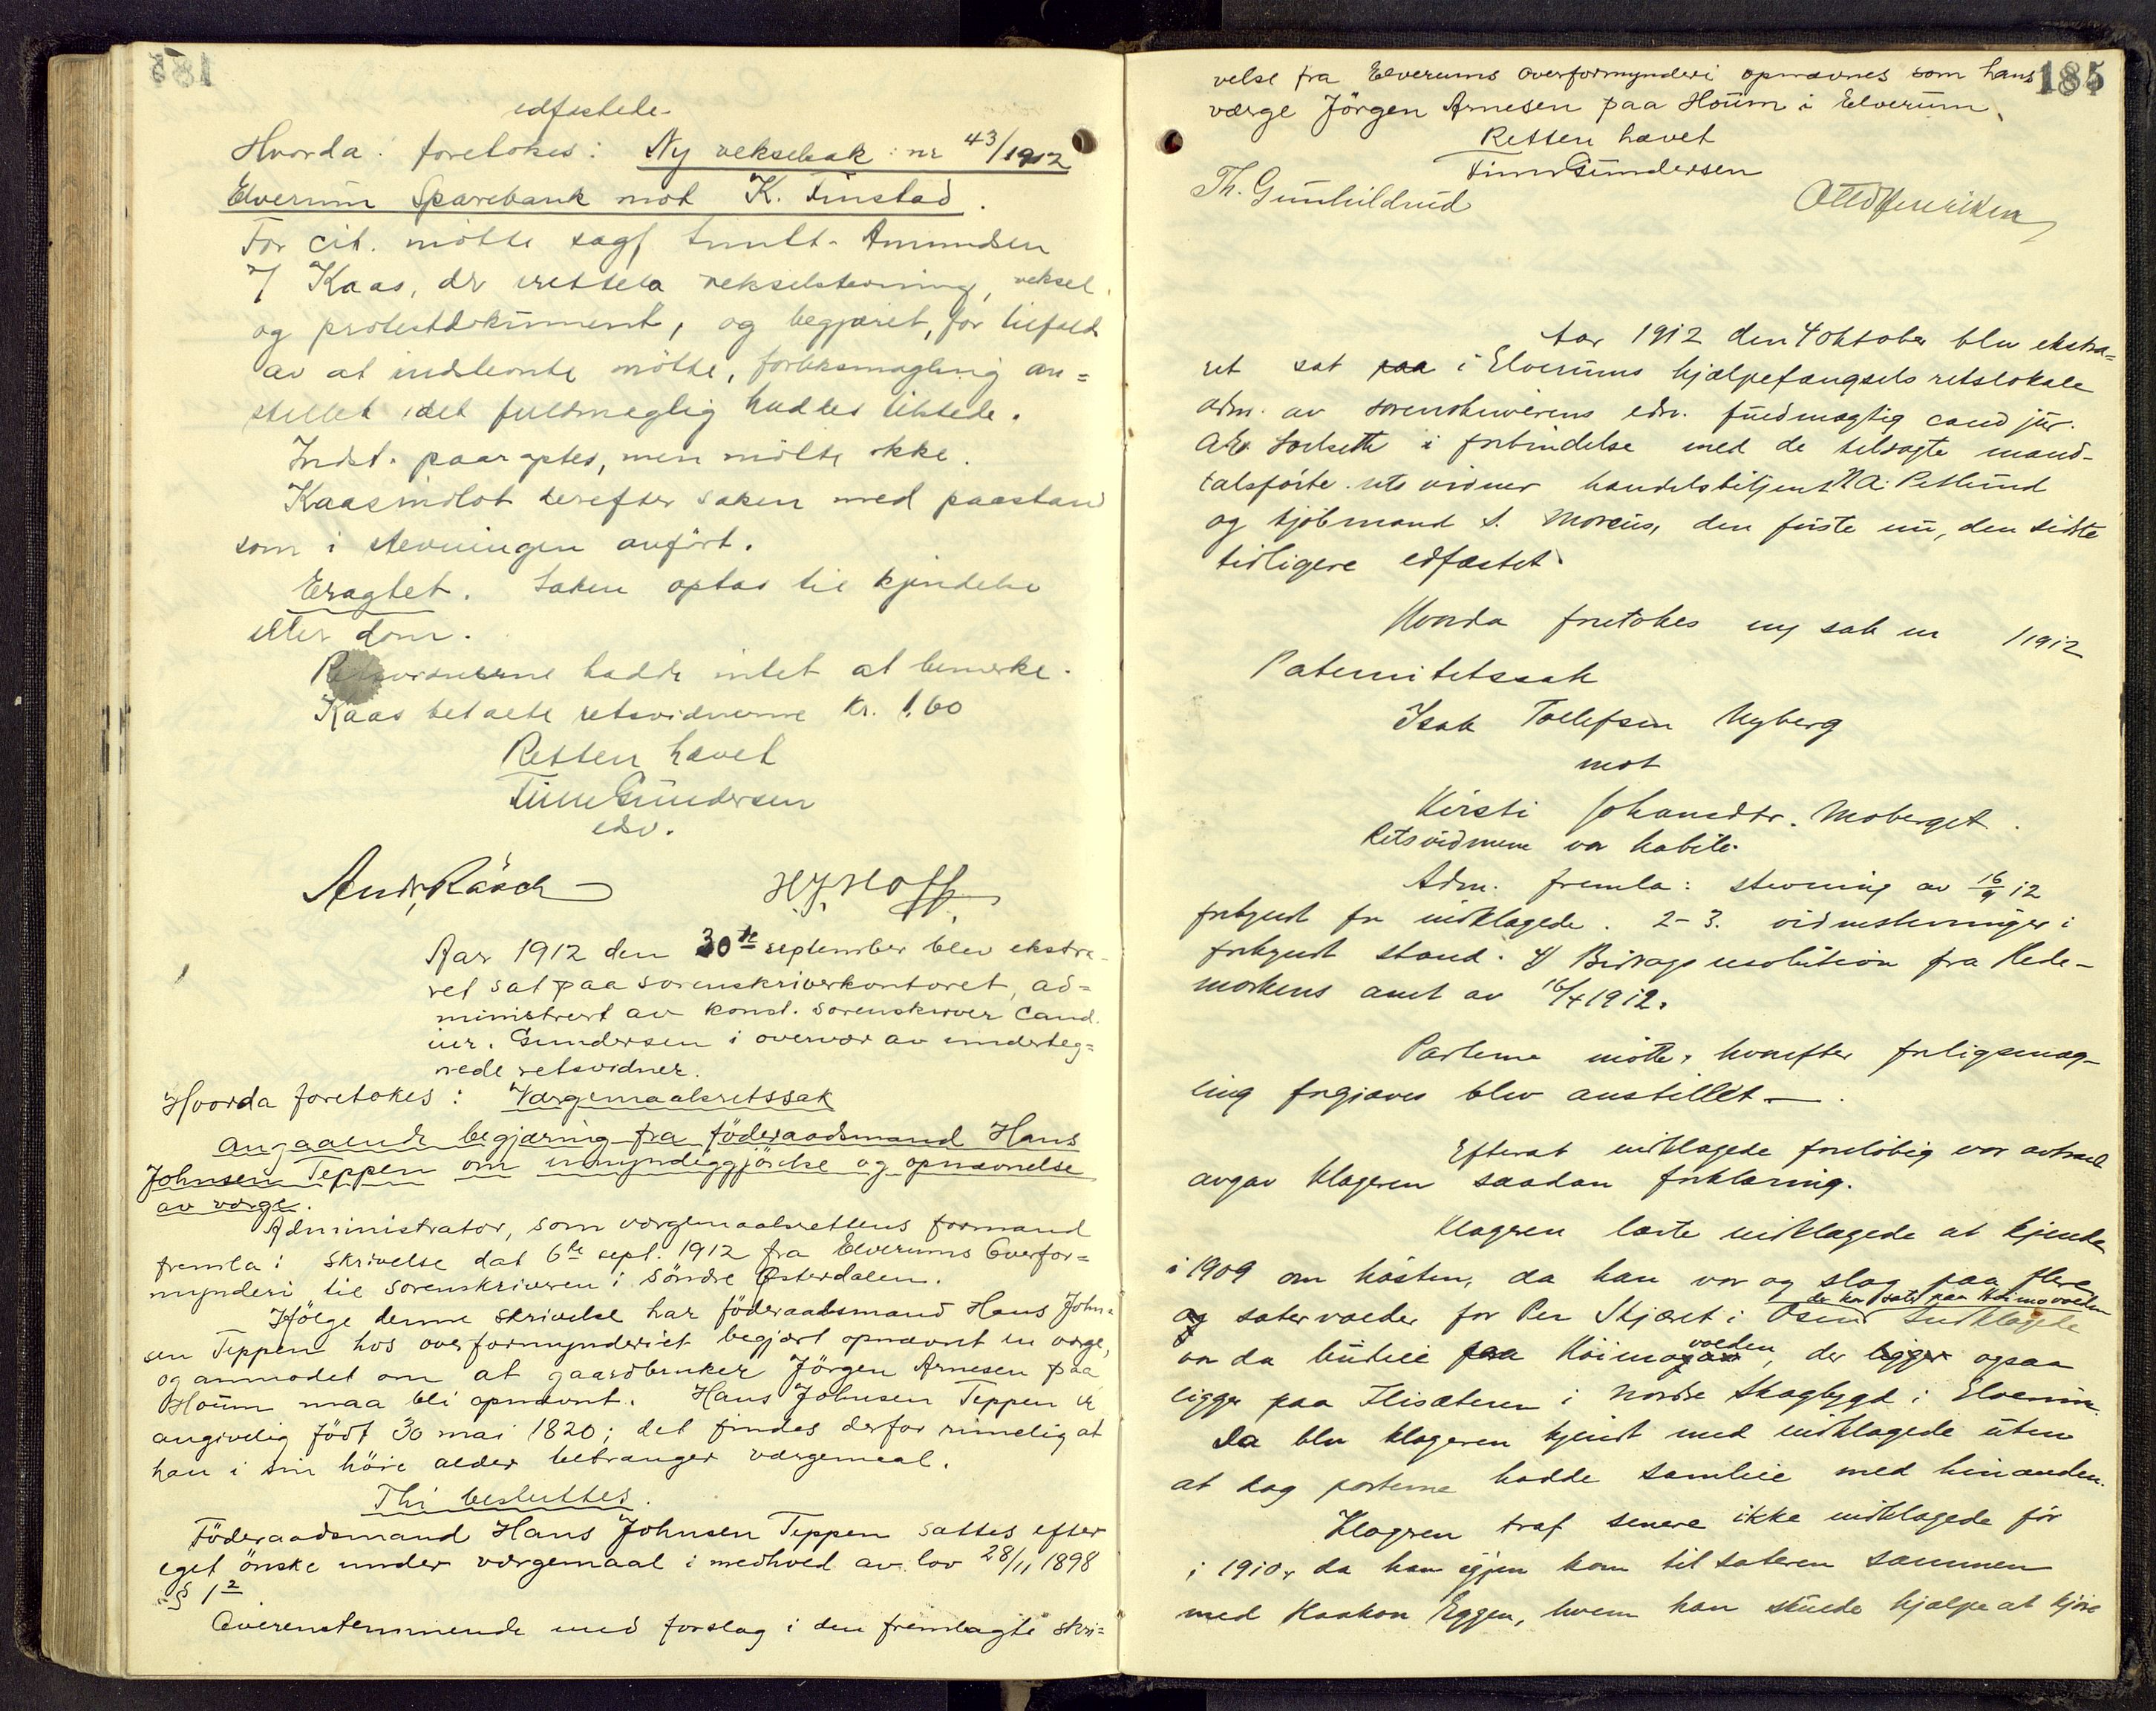 edfæstede.
Hvorda foretokes: Ny vekselsak: nr 43/1912
Elverum Sparebank mot K. Finstad.
For cit. møtte sagf. fuldm. Amundsen
f/ Kaas, der irettela vekselstevning, veksel
og protestdokument, og begjæret, for tilfælde
av at indstevnte møtte, forliksmægling an=
stillet idet fuldmægtig hadde tilstede.
Indst. paaroptes, men møtte ikke.
Kaas indlot derefter saken med paastand
som i stevningen anført.
Eragtet. Saken optas til kjendelse
eller dom.
Retsvidnerne hadde intet at bemerke.
Kaas betalte retsvidnerne Kr. 1,60
Retten hævet
Finn Gundersen
edsv.
Andr. Räsch H.J. Hoff
Aar 1912 den 30te september blev ekstra-
ret sat paa sorenskriverkontoret, ad=
ministrert av konst. sorenskriver Cand.
jur. Gundersen i overvær av underteg=
nede retsvidner.
Hvorda foretokes: Værgemaalsretssak
angaaende begjæring fra föderaadsmand Hans
Johnsen Teppen om umyndiggjörelse og opnævnelse
av værge.
Administrator, som værgemaalsrettens formand
fremla: skrivelse dat 6te sept. 1912 fra Elverums Overfor=
mynderi til sorenskriveren i Söndre Østerdalen.
Ifölge denne skrivelse har föderaadsmand Hans John=
sen Teppen hos overformynderiet begjært opnævnt en værge,
og anmodet om at gaardbruker Jörgen Arnesen paa
Houm maa bli opnævnt. Hans Johnsen Teppen er
angivelig födt 30 mai 1820; det findes derfor rimelig at
han i sin höie alder betrænger værgemaal.
Thi besluttes.
Föderaadsmand Hans Johnsen Teppen sættes efter
eget önske under værgemaal i medhold av lov 28/11 1898
§ 1 2
Overenstemmende med forslag i den fremlagte skri=
185
velse fra Elverums overformynderi opnævnes som hans
værge Jörgen Arnesen paa Houm i Elverum.
Retten hævet
Finn Gundersen
Th. Gunhildrud Otto Henriksen
Aar 1912 den 4 oktober blev ekstra=
ret sat paa i Elverums hjælpefængsels retslokale
adm. av sorenskriverens edsv. fuldmægtig cand jur.
i forbindelse med de tilsagte mand-
talsførte retsvidner handelsbetjent N A. Petlund
og kjøbmand S. Moreus, den første nu, den sidste
tidligere edfæstet.
Hvorda foretokes ny sak nr /1912
Paternitetssak
Isak Tollefsen Nyberg
mot
Kirsti Johansdtr. Moberget.
Retsvidnene var habile.
Adm. fremla: stevning av 16/9 12
forkyndt for indklagede. 2-3. vidnestevninger i
forkyndt stand. 4) Bidragsresolution fra Hede-
markens amt av 16/4 1912.
Parterne møtte, hvorefter forligsmæg-
ling forgjæves blev anstillet.
Efterat indklagede foreløbig var avtraadt
avgav klageren saadan forklaring.
Klageren lærte indklagede at kjende
i 1909 om høsten, da han var og slog paa flere
der har sæter paa Koimovolden
og sætervolder for Per Skjæret i Osen. Indklagede
var da budeie paa Koimogaa volden, der ligger ogsaa
ligger paa Flisæteren i Nordre Skogbygd i Elverum.
Da blev klageren kjendt med indklagede uten
at dog parterne hadde samleie med hinanden.
Klageren traf senere ikke indklagede før
i 1910, da han igjen kom til sæteren sammen
med Haakon Eggen, hvem han skulde hjælpe at kjøre